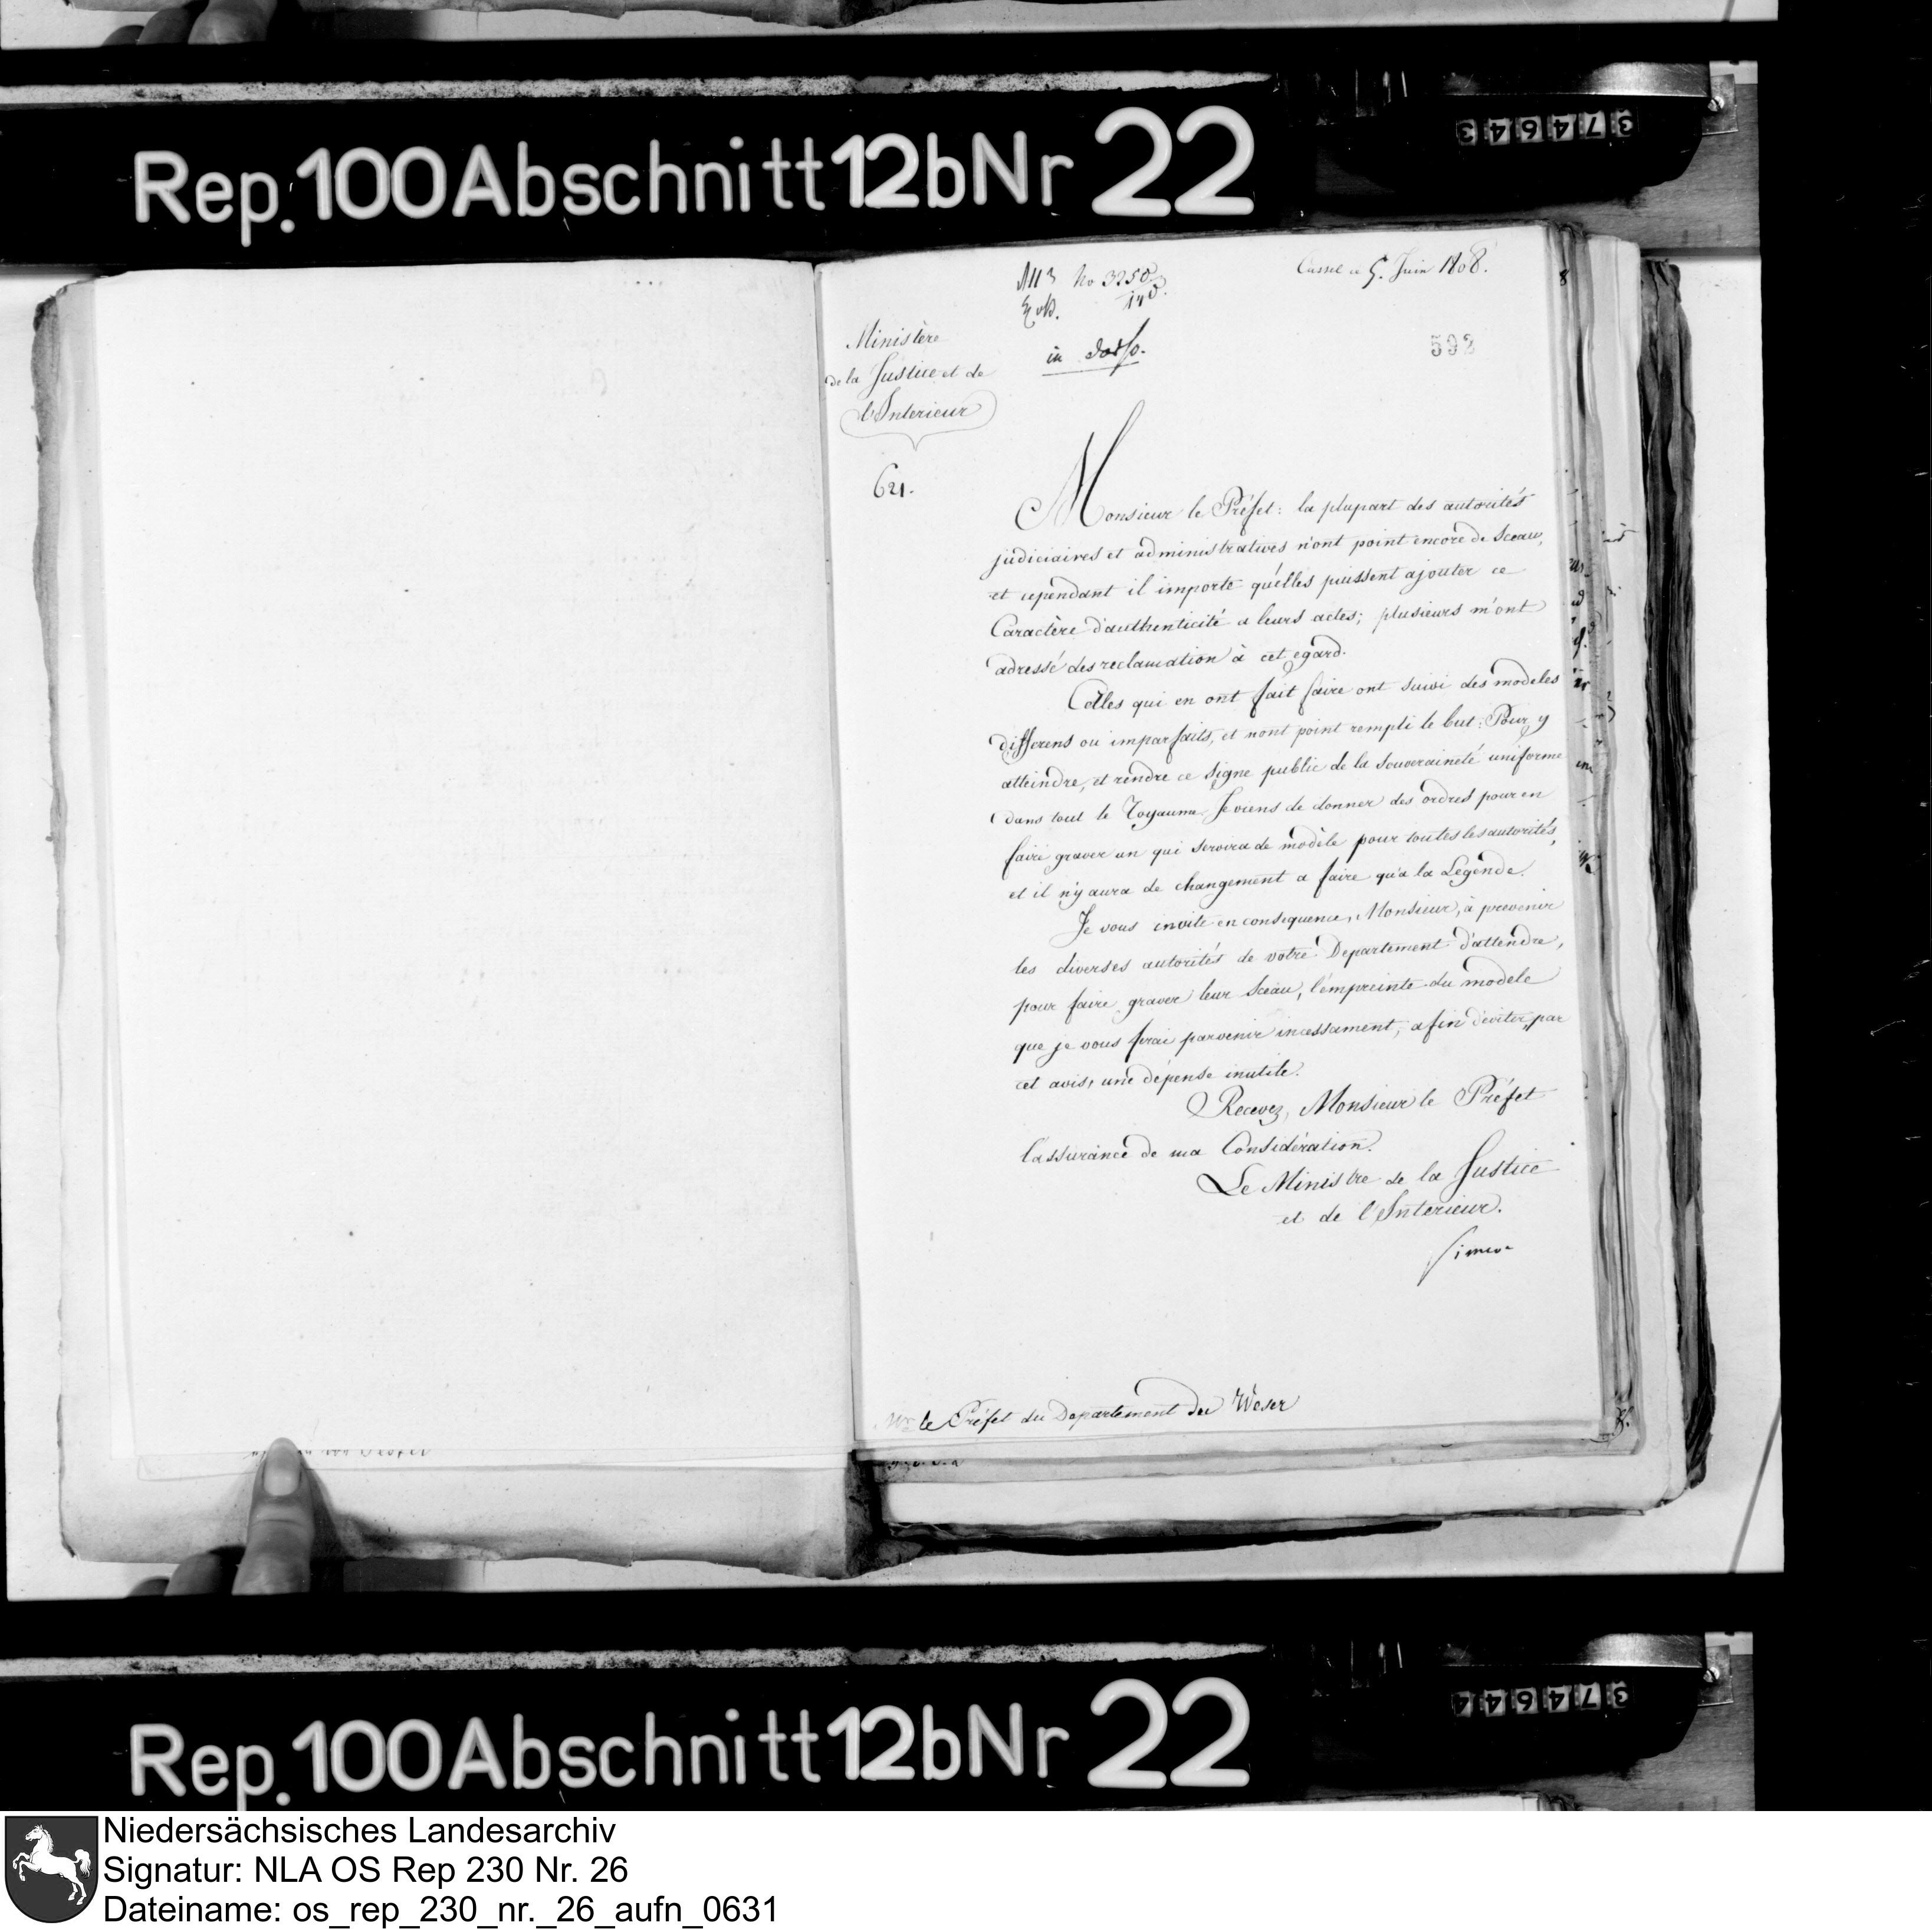 Rep. 100 Abschnitt 12b Nr 22
374643
No 3250
Cassel ce 5. Juin 1808.
in dorso.
592
Ministère
de la Justice et de
l'Interieur
621.
Monsieur le Préfet: la plupart des autorités
judiciaires et administratives n'ont point encore de Sceau,
et cependant il importe qu'elles puissent ajouter ce
Caractère d'authenticité a leurs actes; plusieurs m'ont
adressé des reclamation à cet egard.
Celles qui en ont fait faire ont suivi des modeles
differens ou imparfaits, et n'ont point rempli le but: Pour y
atteindre, et rendre ce signe public de la souveraineté uniforme
dans tout le Royaume Je viens de donner des ordres pour en
faire graver un qui servira de modèle pour toutes les autorités,
et il n'y aura de changement a faire qu'a la Légende.
Je vous invite en consequence, Monsieur, à prevenir
les diverses autorités de votre Departement d'attendre,
pour faire graver leur Sceau, l'empreinte du modele
que je vous ferai parvenir incessament, afin d'eviter, par
cet avis, une dépense inutile.
Recevez, Monsieur le Préfet
l'assurance de ma Considération.
Le Ministre de la Justice
et de l'Interieur.
Simeon
Mr le Préfet du Departement du Weser
Rep. 100 Abschnitt 12b Nr 22
374644
Niedersächsisches Landesarchiv
Signatur: NLA OS Rep 230 Nr. 26
Dateiname: os_rep_230_nr._26_aufn_0631